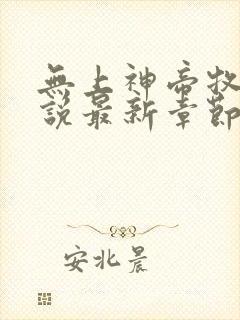 無上神帝牧
說最新章節
安北晨